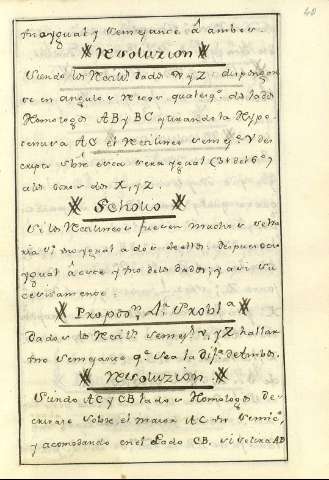 40
tro ygual y semejante â ambos.
Resoluzion
Siendo los Rectil.s dados V y Z: disponganse
se en angulo recto qualesq.a de los lados
Homologos AB y BC y tirando la Hypo
tenusa AC el Rectilineo semej.e V des
cripto sobre esta sera ygual (31 del 6º)
a los otros dos X, y Z.
Scholio
Si los Rectilineos fuesen muchos
ygual â dos de ellos: despues otro
ygual â este y otro de los dados; y asi su
cesivamente.
Propos.n 4.a Probl.a
Dados los Rectil.s semej.s V, y Z. hallar
otro semejante q.e sea la dif.a de ambos.
Resoluzion.
Siendo AC y CB lados Homologos des
crivase sobre el maior AC un semic.o
y acomodando en el Lado CB, si se tira AD